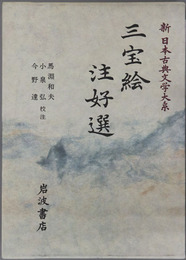 新日本古典文学大系
三宝絵
注好選
馬淵和夫
小泉弘 校注
今野達
岩波書店